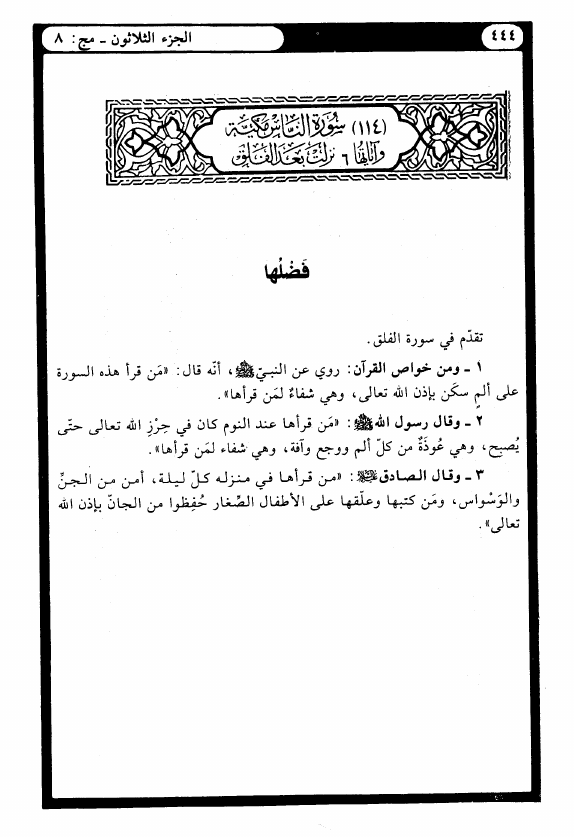 ٤٤٤
الجزء الثلاثون - مج: ٨
(١١٤) سُورَة النَّاس مَكيَّة
وآياتها ٦ نزلت بَعد الفَلَق
فَضْلُها
تقدّم في سورة الفلق.
١ - ومن خواص القرآن: روي عن النبيّ ﷺ، أنّه قال: «مَن قرأ هذه السورة
على ألمٍ سكَن بإذن الله تعالى، وهي شفاءٌ لمَن قرأها».
٢ - وقال رسول الله ﷺ: «مَن قرأها عند النوم كان في حِرْزِ الله تعالى حتّى
يُصبح، وهي عُوذَةٌ من كلّ ألم ووجع وآفة، وهي شفاء لمَن قرأها».
٣ - وقال الصادق: «من قرأها في منزله كلّ ليلة، أمن من الجنّ
والوَسْواس، ومَن كتبها وعلّقها على الأطفال الصِّغار حُفِظوا من الجانّ بإذن الله
تعالى».